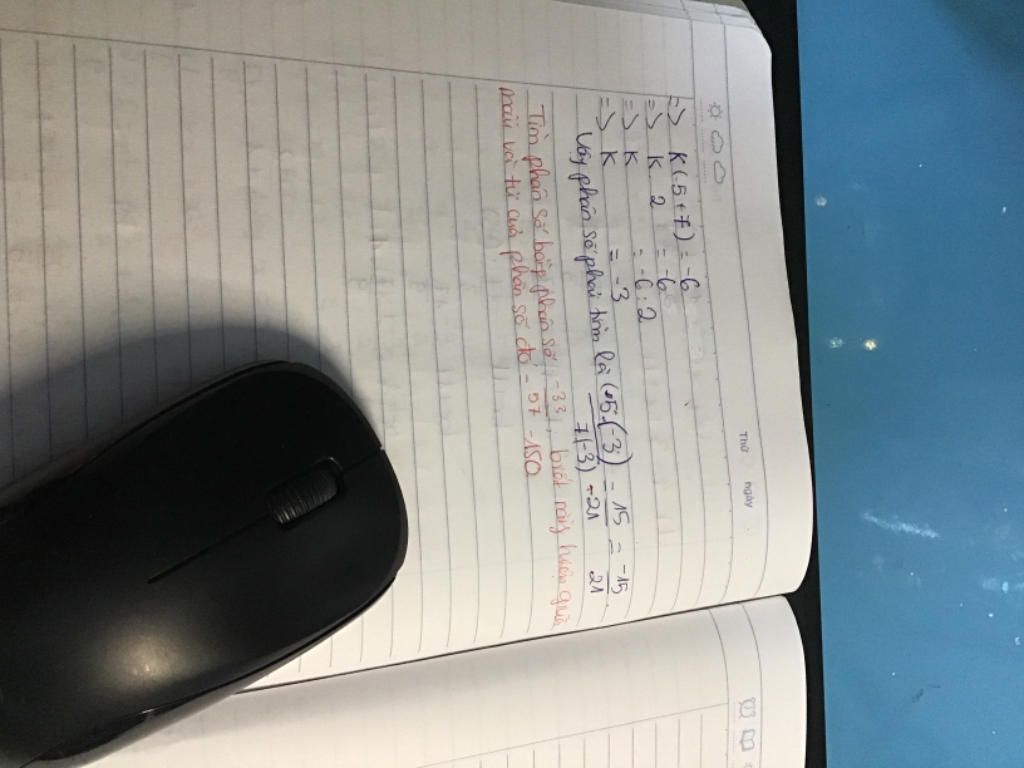 Thứ ngày
=> K(-5+7) = -6
=> K 2 = -6
=> K = -6:2
=> K = -3
Vậy phân số phải tìm là (-5.(-3) = 15 = -15
7(-3) -21 21
Tìm phân số bằng phân số -33, biết rằng hiệu giữa
mẫu và tử của phân số đó - 57 -150